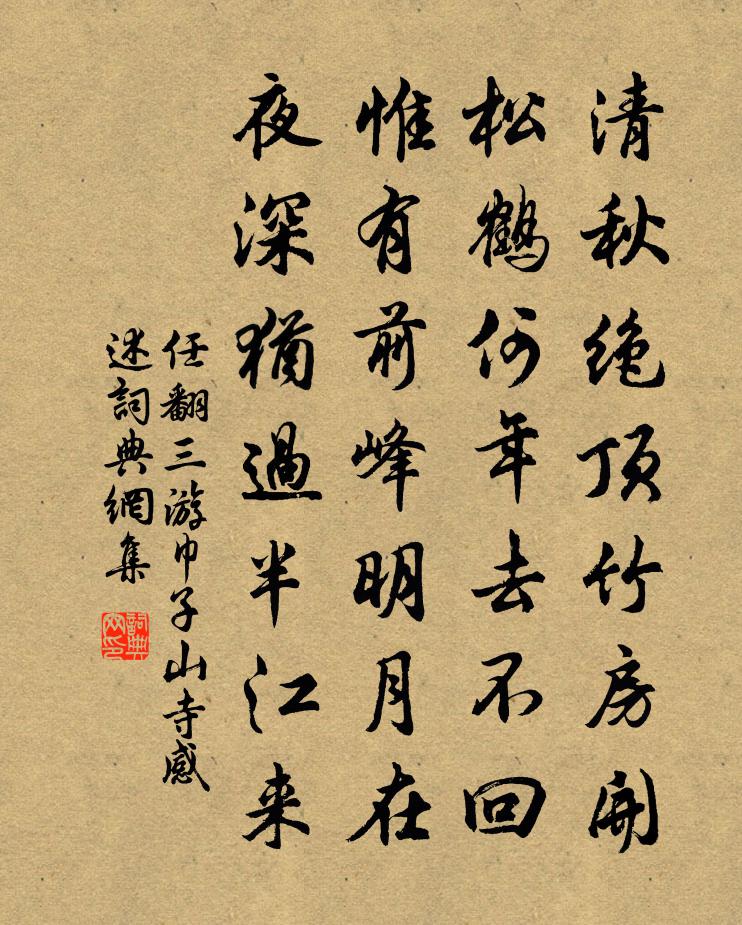 清秋絶頂竹房開
松鶴何年去不回
惟有前峰明月在
夜深猶過半江来
任翻三游巾子山寺感
述詞典網集
詞典
网印